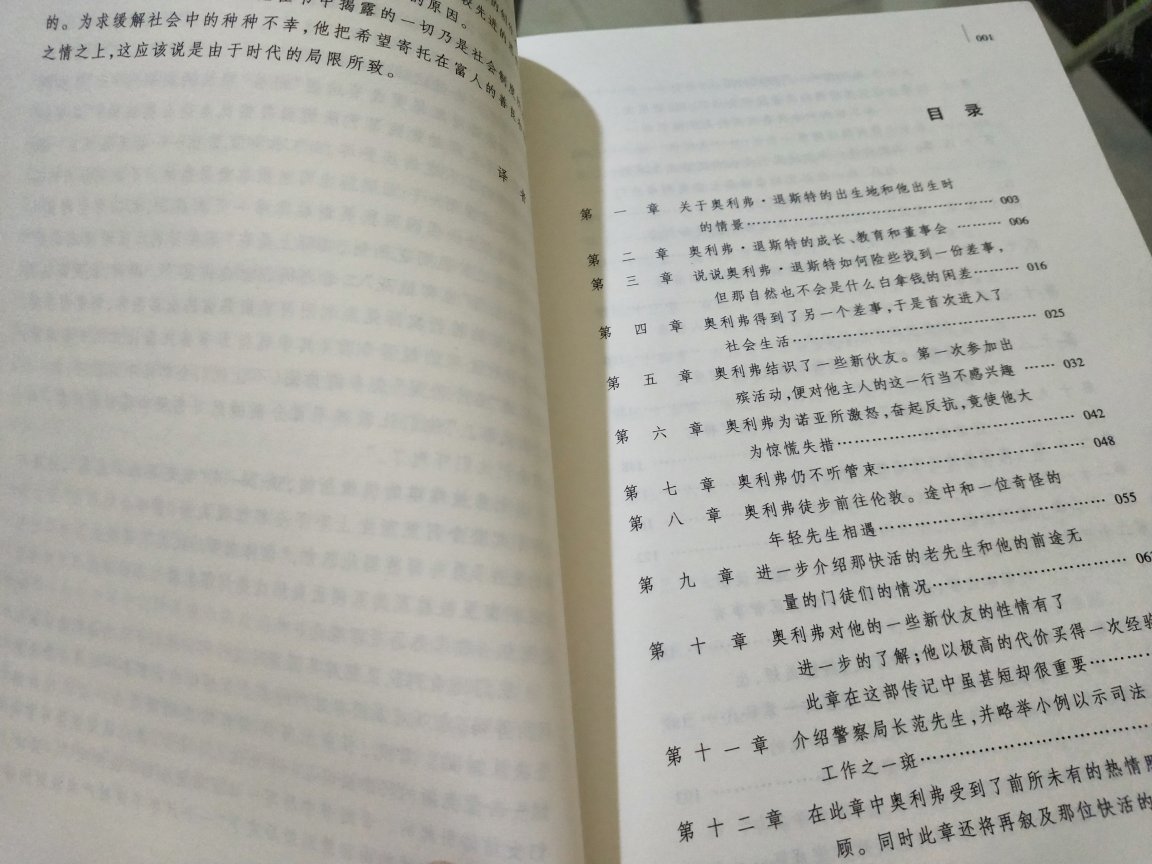 的原因。
书中揭露的一切乃是社会制度
的。为求缓解社会中的种种不幸，他把希望寄托在富人的善良
之情之上，这应该说是由于时代的局限所致。
译 者
001
目 录
第 一 章 关于奥利弗·退斯特的出生地和他出生时
的情景 …… 003
第 二 章 奥利弗·退斯特的成长、教育和董事会 …… 006
第 三 章 说说奥利弗·退斯特如何险些找到一份差事，
但那自然也不会是什么白拿钱的闲差 …… 016
第 四 章 奥利弗得到了另一个差事，于是首次进入了
社会生活 …… 025
第 五 章 奥利弗结识了一些新伙友。第一次参加出
殡活动，便对他主人的这一行当不感兴趣 …… 032
第 六 章 奥利弗为诺亚所激怒，奋起反抗，竟使他大
为惊慌失措 …… 042
第 七 章 奥利弗仍不听管束 …… 048
第 八 章 奥利弗徒步前往伦敦。途中和一位奇怪的
年轻先生相遇 …… 055
第 九 章 进一步介绍那快活的老先生和他的前途无
量的门徒们的情况 …… 06
第 十 章 奥利弗对他的一些新伙友的性情有了
进一步的了解；他以极高的代价买得一次经验
此章在这部传记中虽甚短却很重要 ……
第 十 一 章 介绍警察局长范先生，并略举小例以示司法
工作之一斑 ……
第 十 二 章 在此章中奥利弗受到了前所未有的热情
顾。同时此章还将再叙及那位快活的